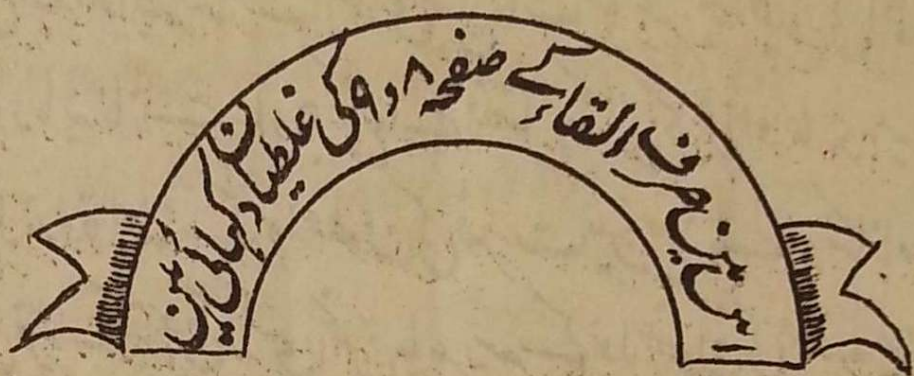 اس مین صرف القاء کے صفحہ ۸ و ۹ کی غلطیان دکہائی ہین